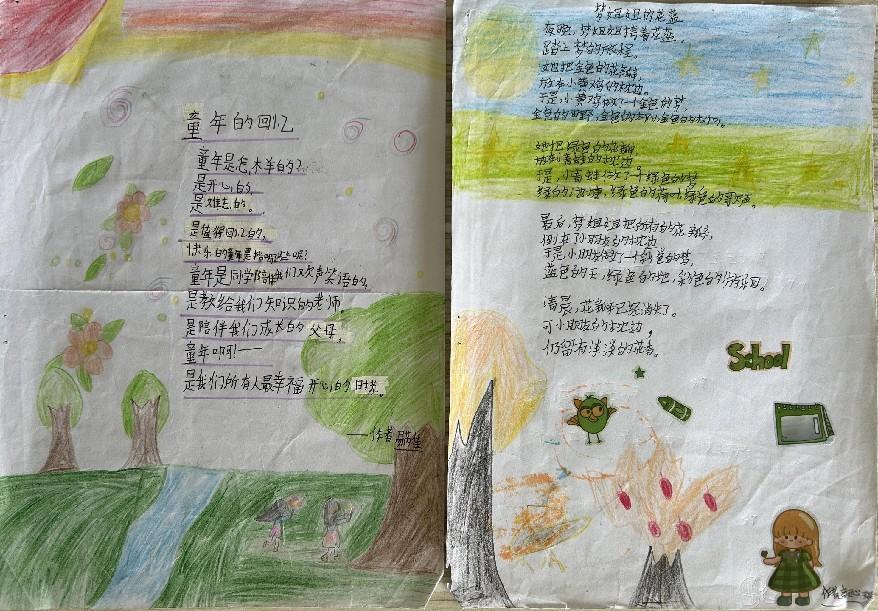 童年的回忆
童年是怎么样的?
是开心的,
是难忘的。
是值得回忆的。
快乐的童年是指哪些呢?
童年是同学陪我们欢声笑语的,
是教给我们知识的老师。
是陪伴我们成长的父母,
童年啊!——
是我们所有人最幸福开心的时候。
——作者
梦姐姐的花篮
夜晚,梦姐姐挎着花篮,
踏上梦的旅程。
她把金色的花瓣,
放在小黄鸡的枕边。
于是,小黄鸡做了一个金色的梦,
金色的田野,金色的
她把绿色的花瓣
放到青蛙的枕边。
于是,小青蛙做了一个绿色的梦
绿色的池塘,绿色的荷叶,绿色的歌声。
最后,梦姐姐把所有的花瓣,
倒在小朋友的枕边
于是小朋友做了一个彩色的梦,
蓝色的天,绿色的地,彩色的
清晨,花瓣已经消失了。
可小朋友的枕边,
仍留有淡淡的花香。
School